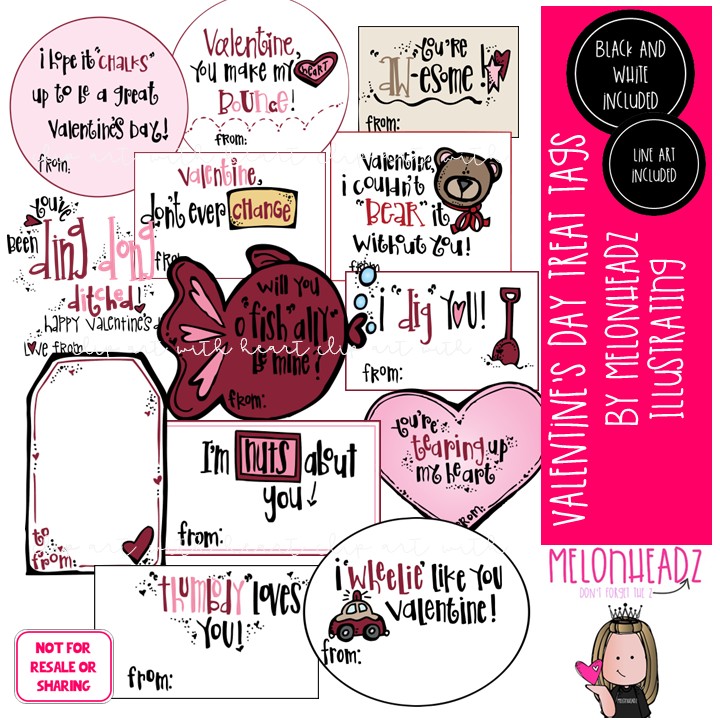 i hope it "CHALKS"
up to be a great
Valentine's Day!
from:
Valentine,
you make my HEART
BOUNCE!
from:
"you're
"AW-esome!
from:
Valentine,
don't ever CHANGE
from:
Valentine,
i couldn't
"BEAR" it
without you!
from:
You've
been ding dong
ditched!
HAPPY Valentine's D
Love from:
will you
"o"fish"ally"
be mine?
from:
i "dig" YOU!
from:
to
from:
I'm NUTS about
you
from:
You're
tearing up
my heart
from:
"thumbody" loves
YOU!
from:
i "wheelie" like you
Valentine!
from:
clip art with heart clip art with
BLACK AND
WHITE
INCLUDED
LINE ART
INCLUDED
VALENTINE'S DAY TREAT TAGS
BY MELONHEADZ
ILLUSTRATING
MELONHEADZ
DON'T FORGET THE Z
MELONHEADZ
NOT FOR
RESALE OR
SHARING